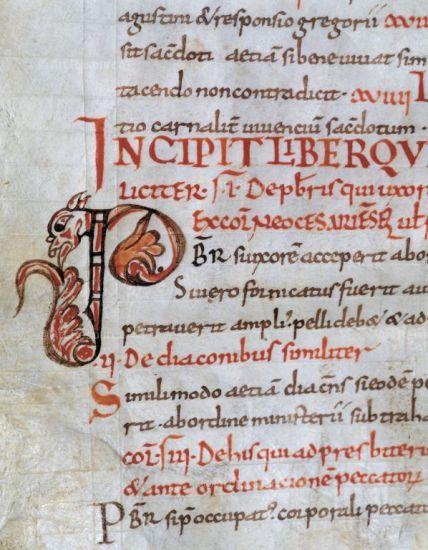 agustini & responsio gregorii
sit sacdoti aetiā si bene vivat simi
tacendo non contradicit · xviii
tio carnalit viventiū sacdotum ·
INCIPIT LIBER QV
LICITER · I · De pbris qui uxor
EX COÑ NEOCESARIENSE
PBR si uxorē acceperit abor
Si vero fornicatus fuerit au
petraverit ampli pelli deb& & ad
·ii· De diaconibus similiter
Simili modo aetiā diacns si eodē pe
rit · ab ordine ministerii subtraha
De his qui ad presbiteri
& ante ordinationē peccator
PBR si p occupat corporali peccat